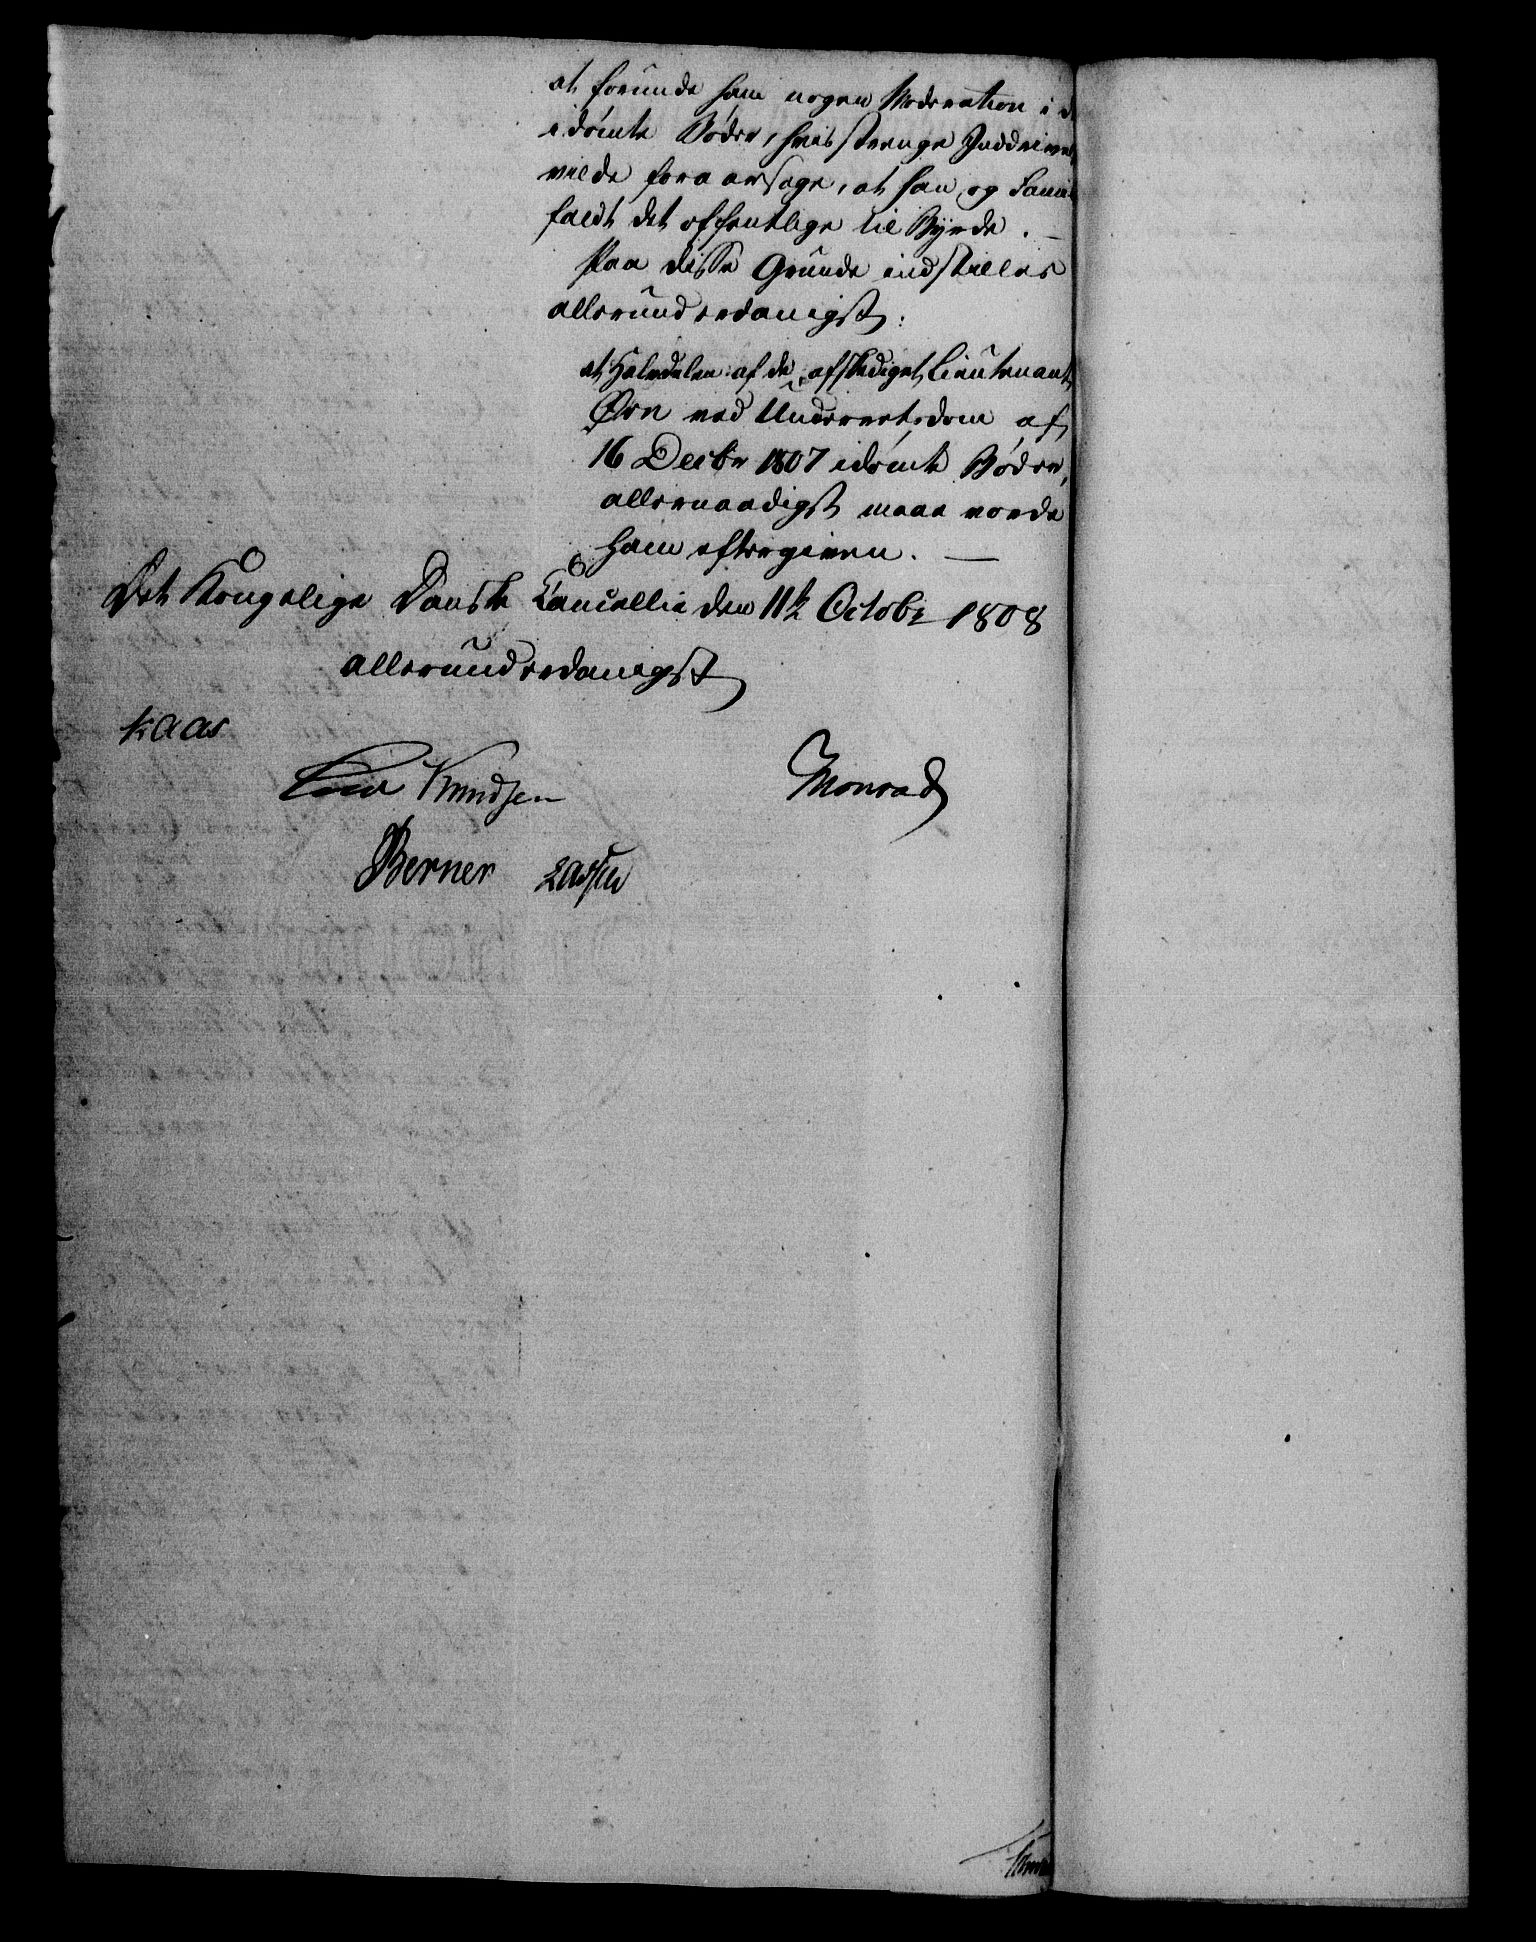 at forunde ham nogen Moderation i d
idømte Bøder, hvis strenge Inddrivel
vilde foraarsage, at han og Famil
faldt det offentlige til Byrde. —
Paa disse Grunde indstilles
allerunderdanigst:
at Halvdelen af de, afskediget Lieutenant
Ørn ved Underretsdom af
16 Decbr 1807 idømte Bøder,
allernaadigst maae vorde
ham eftergiven. —
Det Kongelige Danske Cancellie den 11te Octobr 1808
allerunderdanigst
Kaas
Knudsen Monrad
Berner Lassen